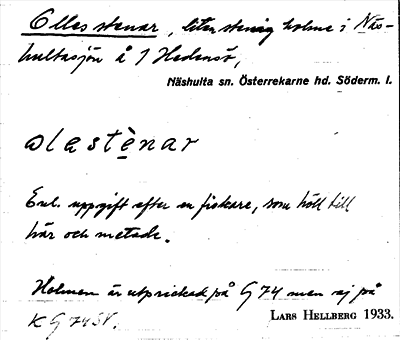 Olles stenar, liten stenig holme i Näs-
hultasjön å 1 Hedensö,
Näshulta sn. Österrekarne hd. Söderm. l.
ωlestènar
Enl. uppgift efter en fiskare, som höll till
här och metade.
Holmen är utprickad på G 74 men ej på
K G 74 SV.
LARS HELLBERG 1933.